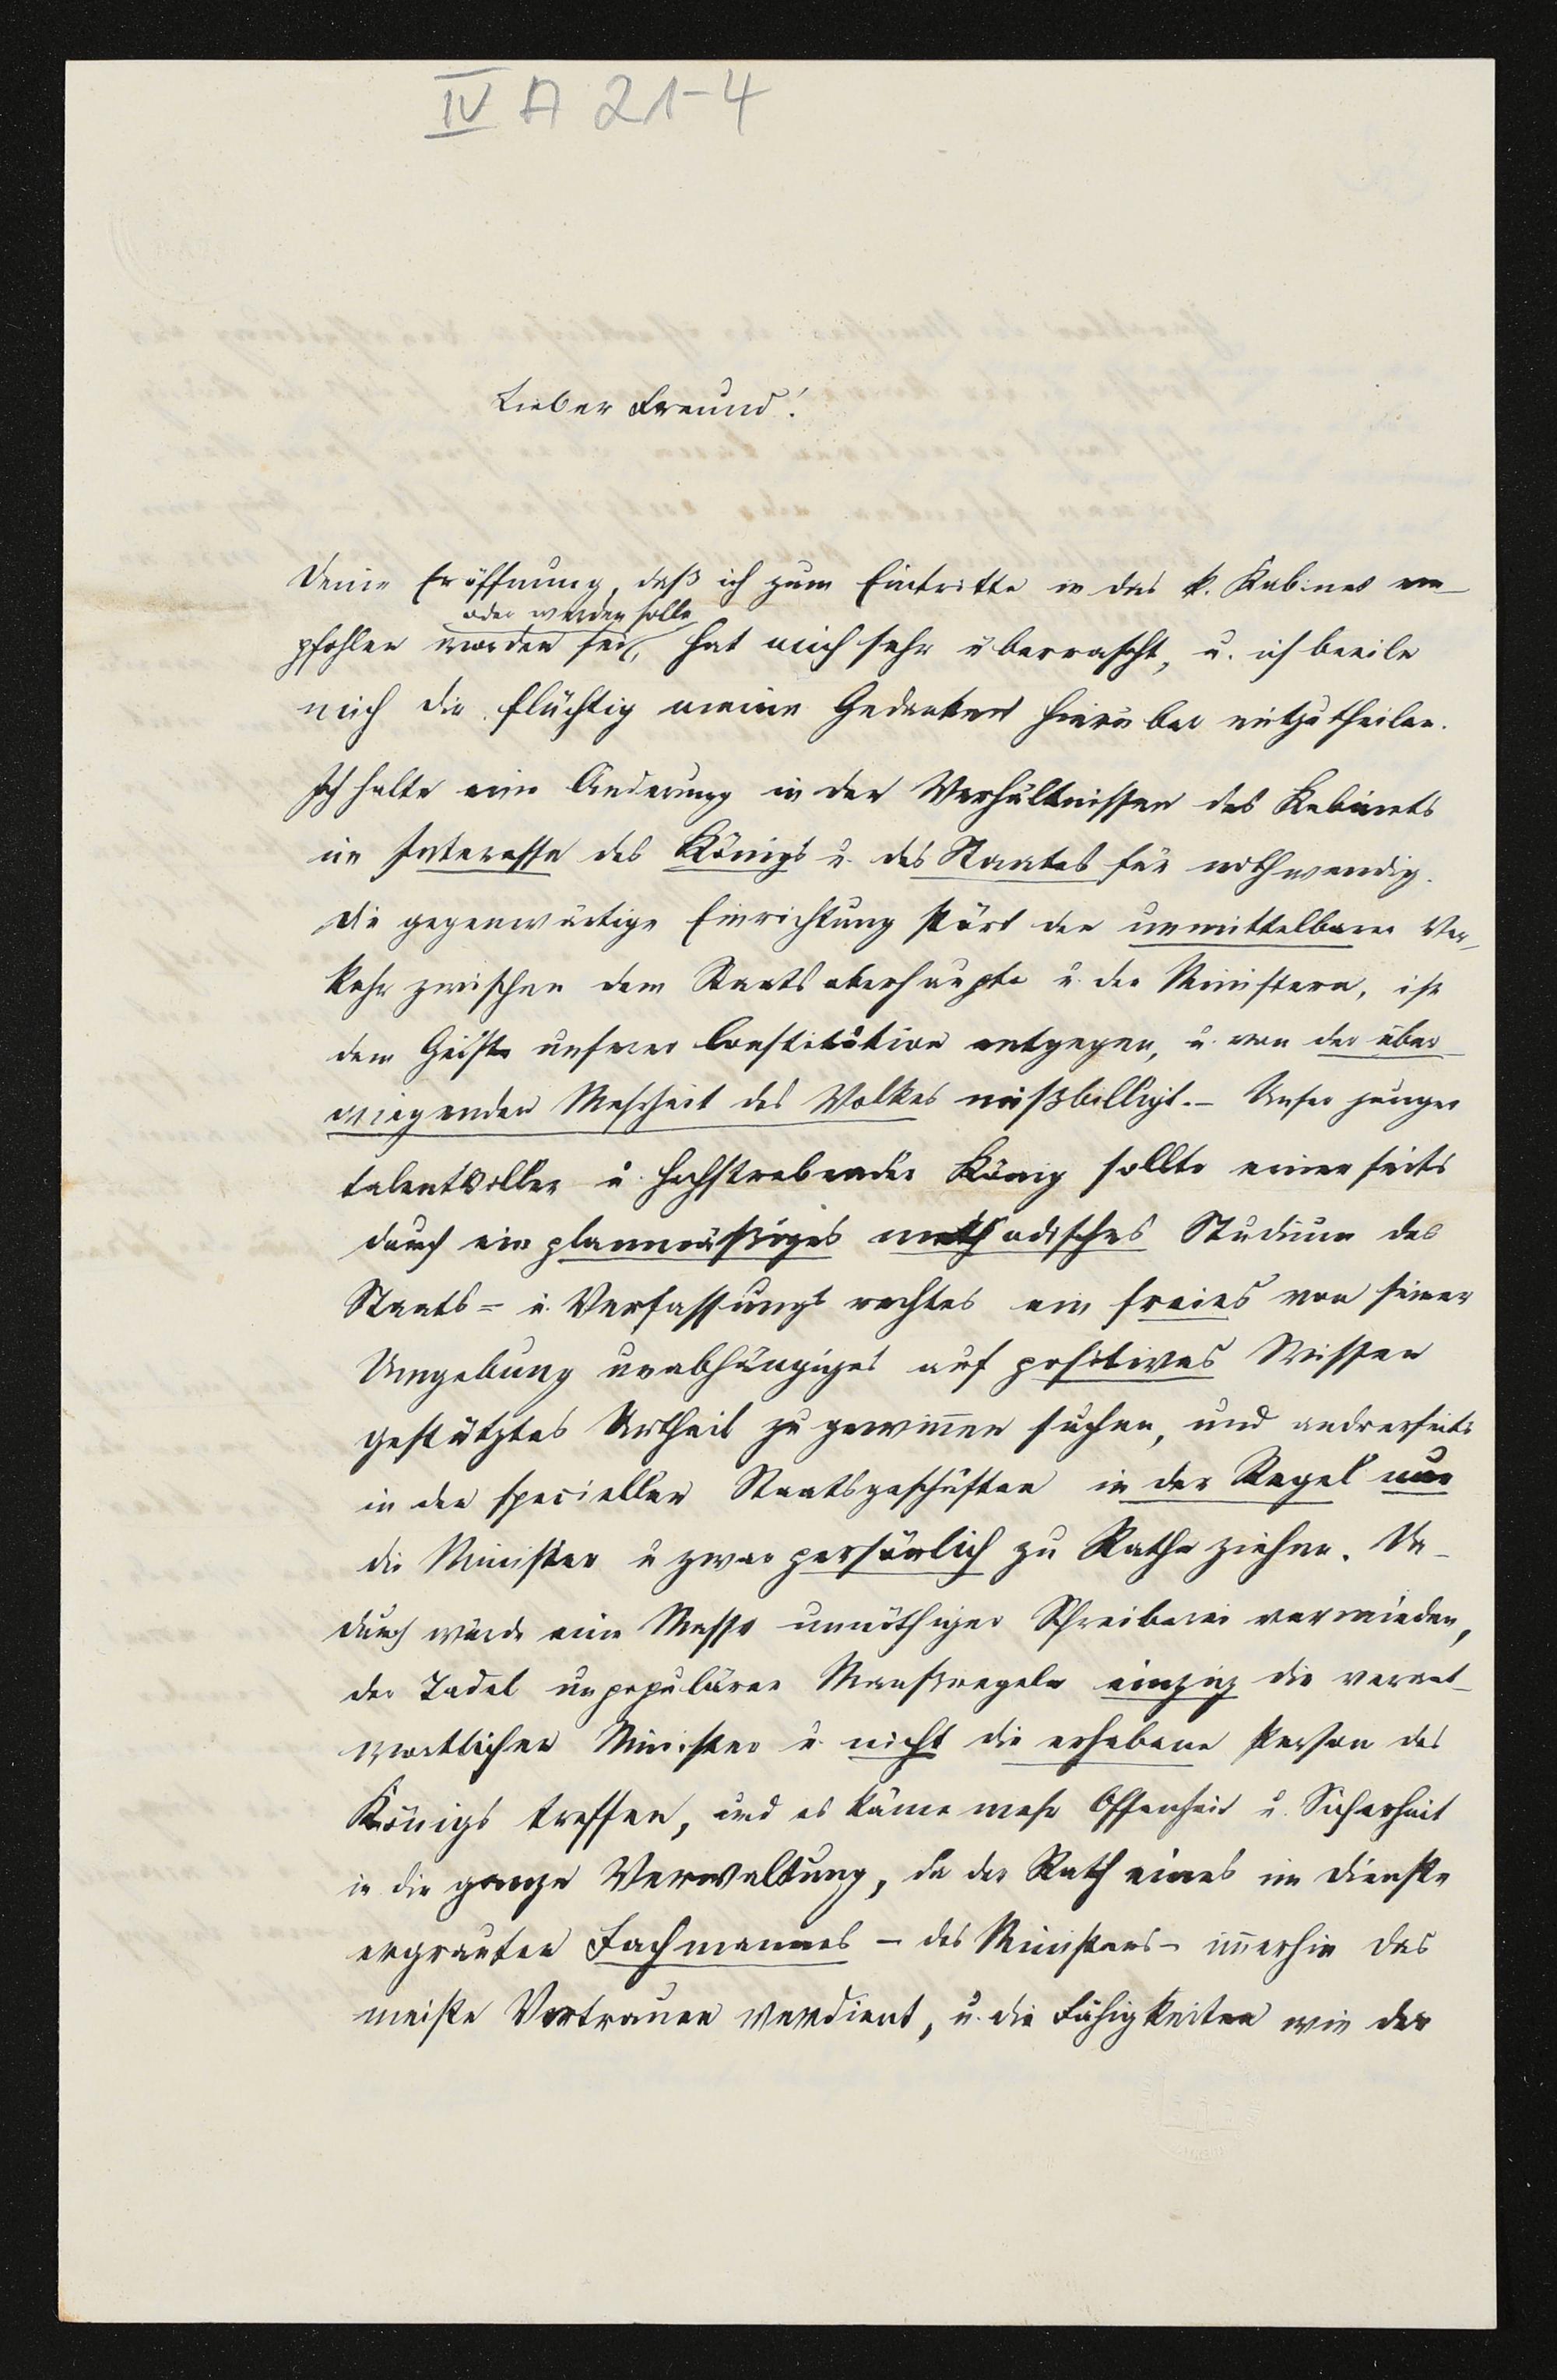 IV A 21-4
Lieber Freund!
Deine Eröffnung, daß ich zum Eintritte in das k. Kabinet em-
oder werden solle
pfohlen worden sei, hat mich sehr überrascht, u. ich beeile
mich dir flüchtig meine Gedanken hierüber mitzutheilen.
Ich halte eine Änderung in den Verhältnissen des Kabinets
im Interesse des Königs u. des Staates für nothwendig.
Die gegenwärtige Einrichtung stört den unmittelbaren Ver-
kehr zwischen dem Staatsoberhaupte u. den Ministern, ist
dem Geiste unserer Constitution entgegen, u. von der über-
wiegenden Mehrheit des Volkes mißbilligt. – Unser junger
talentvoller u. hochstrebender König sollte einerseits
durch ein planmäßiges methodisches Studium des
Staats- u. Verfassungsrechtes ein freies von seiner
Umgebung unabhängiges auf positives Wissen
gestütztes Urtheil zu gewinnen suchen, und andrerseits
in den speciellen Staatsgeschäften in der Regel nur
die Minister u zwar persönlich zu Rathe ziehen. Da-
durch würde eine Masse unnöthiger Schreiberei vermieden,
der Tadel unpopulärer Maaßregeln einzig die verant-
wortlichen Minister u. nicht die erhabene Person des
Königs treffen, und es käme mehr Offenheit u. Sicherheit
in die ganze Verwaltung, da der Rath eines im Dienste
ergrauten Fachmannes – des Ministers – immerhin das
meiste Vertrauen verdient, u. die Fähigkeiten wie der